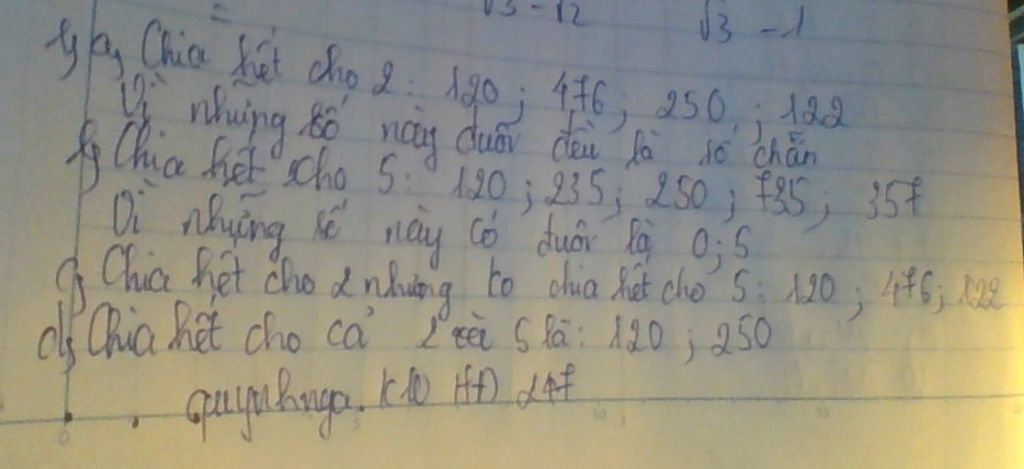 √3 - √2 √3 - 1
a, Chia hết cho 2: 120; 476; 250; 122
Vì những số này đuôi đều là số chẵn
b, Chia hết cho 5: 120; 235; 250; 735; 357
Vì những số này có đuôi là 0; 5
c, Chia hết cho 2 nhưng ko chia hết cho 5: 120; 476; 122
d, Chia hết cho cả 2 và 5 là: 120; 250
quynhnga. 247
0 5 10 15